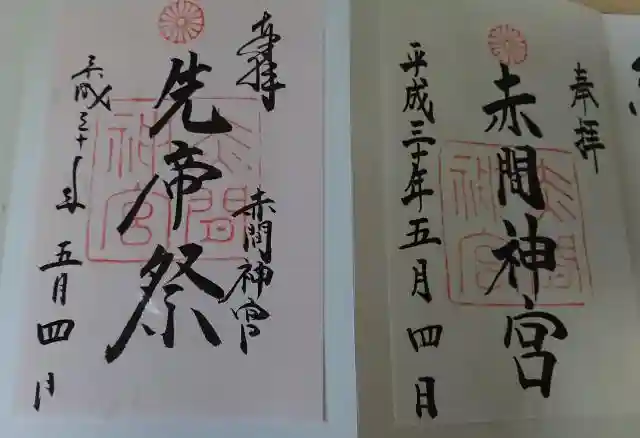 奉拝
赤間神宮
先帝祭
平成三十年
五月四日
赤間神宮
奉拝
赤間神宮
平成三十年五月四日
赤間神宮